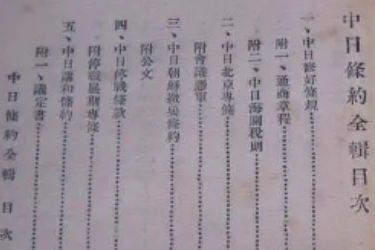 中日條約全輯目次
一、中日修好條規
附一、通商章程
附二、中日海關稅則
二、中日北京專條
附會議憑單
三、中日朝鮮撤兵條約
附公文
四、中日停戰條款
附停戰展期專條
五、中日講和條約
附一、議定書
中日條約全輯 目次